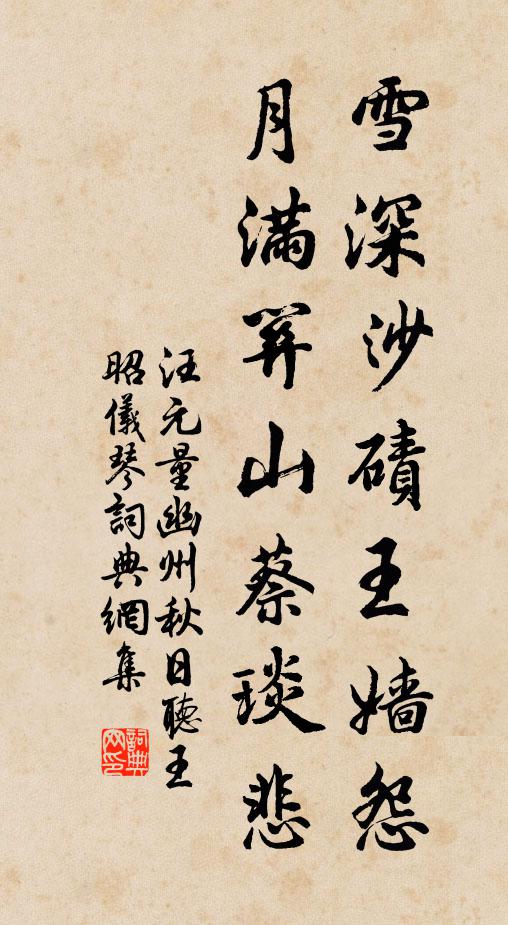 雪深沙磧王嬙怨
月滿關山蔡琰悲
汪元量幽州秋日聽王
昭儀琴詞典網集
詞典網印